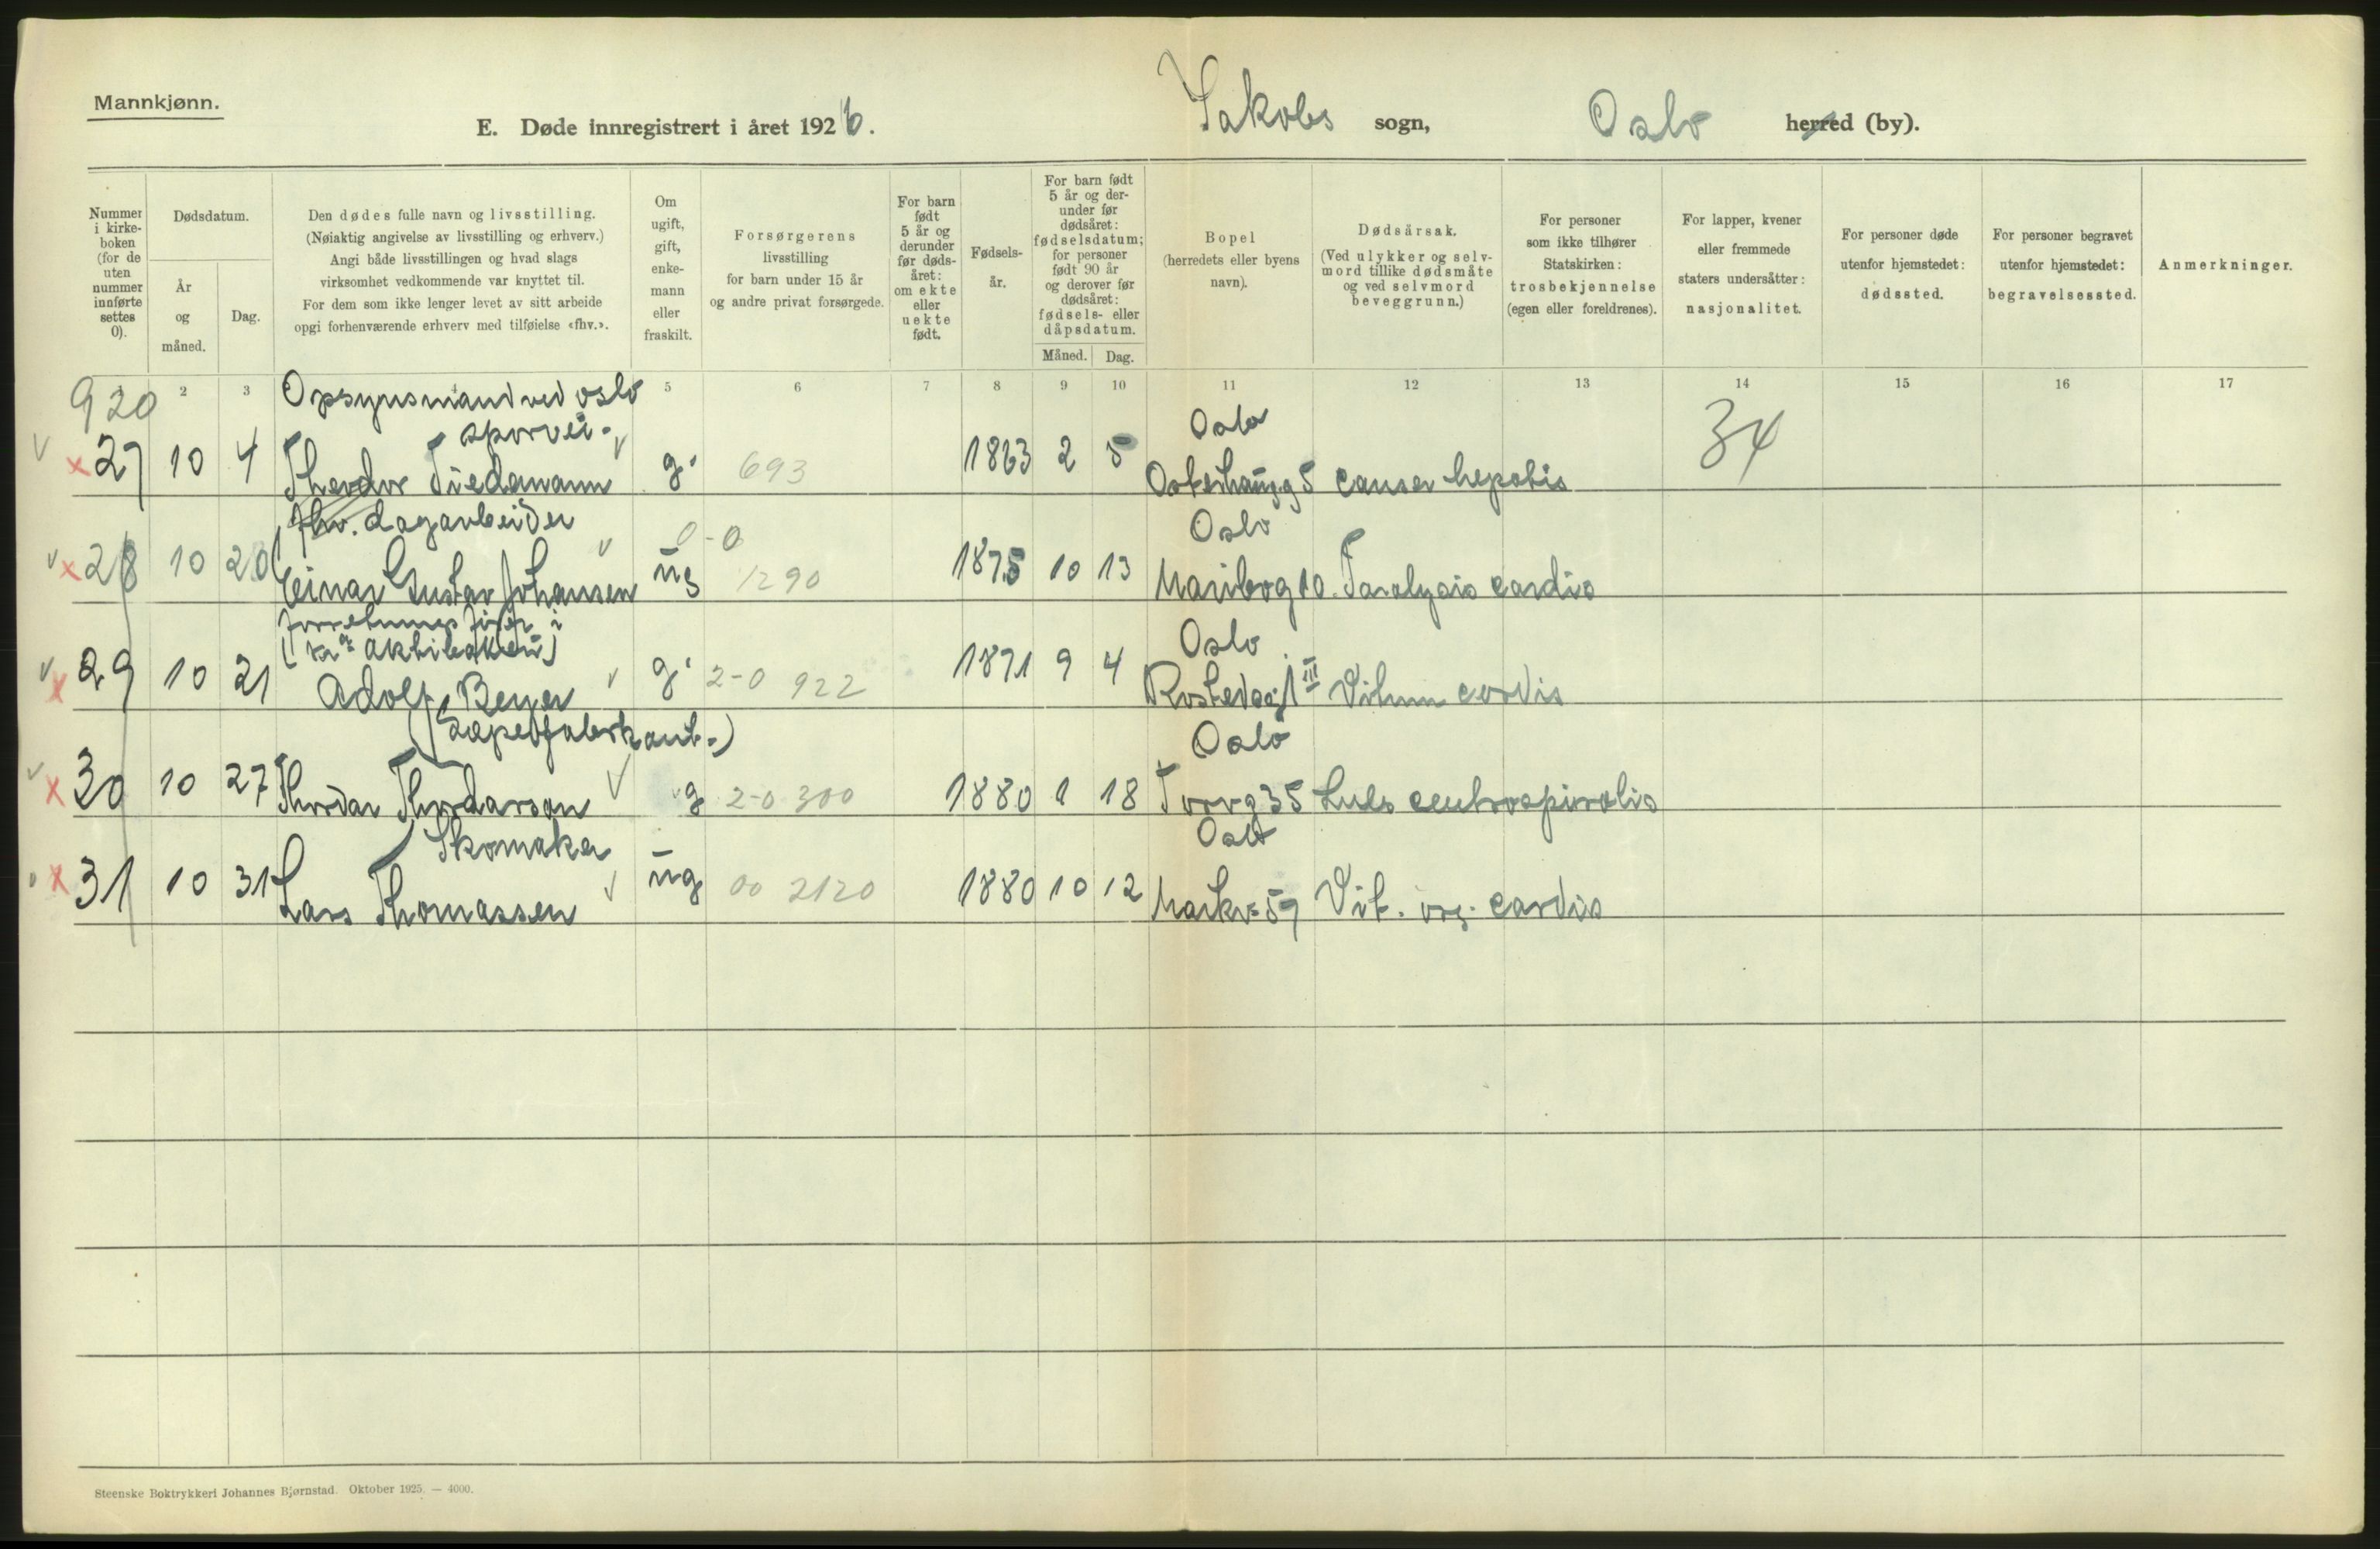 Mannkjønn.
E. Døde innregistrert i året 1926.
Jakobs sogn, Oslo herred (by).
Nummer i kirkeboken (for de uten nummer innførte settes 0).
Dødsdatum.
År og måned.
Dag.
Den dødes fulle navn og livsstilling.
(Nøiaktig angivelse av livsstilling og erhverv.)
Angi både livsstillingen og hvad slags
virksomhet vedkommende var knyttet til.
For dem som ikke lenger levet av sitt arbeide
opgi forhenværende erhverv med tilføielse «fhv.».
Om ugift, gift, enkemann eller fraskilt.
Forsørgerens
livsstilling
for barn under 15 år
og andre privat forsørgede.
For barn født 5 år og derunder før dødsåret: om ekte eller uekte født.
Fødselsår.
For barn født 5 år og derunder før dødsåret: fødselsdatum; for personer født 90 år og derover før dødsåret: fødsels- eller dåpsdatum.
Måned. Dag.
Bopel
(herredets eller byens
navn).
Dødsårsak.
(Ved ulykker og selvmord tillike dødsmåte og ved selvmord beveggrunn.)
For personer
som ikke tilhører
Statskirken:
trosbekjennelse
(egen eller foreldrenes).
For lapper, kvener
eller fremmede
staters undersåtter:
nasjonalitet.
For personer døde
utenfor hjemstedet:
dødssted.
For personer begravet
utenfor hjemstedet:
begravelsessted.
Anmerkninger.
2 3 4 5 6 7 8 9 10 11 12 13 14 15 16 17
920 Opsynsmand ved Oslo
sporvei. Oslo 34
27 10 4 Theodor Tiedemann g. 693 1863 2 5 Osterhausg 5 cancer hepatis
fhv. Lagarbeider 0-0 Oslo
28 10 20 Einar Gustav Johansen ug 1290 1875 10 13 Maribog 10. Paralysis cordis
Aktiebakeri) Oslo
29 10 21 Adolf Beyer g. 2-0 922 1871 9 4 III Vitium cordis
Oslo
30 10 27 Thordar Thordarson g 2-0 300 1880 1 18 Torvg 35 Lues cerebrospinalis
Skomaker Oslo
31 10 31 Lars Thomassen ug 00 2120 1880 10 12 Markv 59 Vit. org. cordis
Steenske Boktrykkeri Johannes Bjørnstad. Oktober 1925. — 4000.